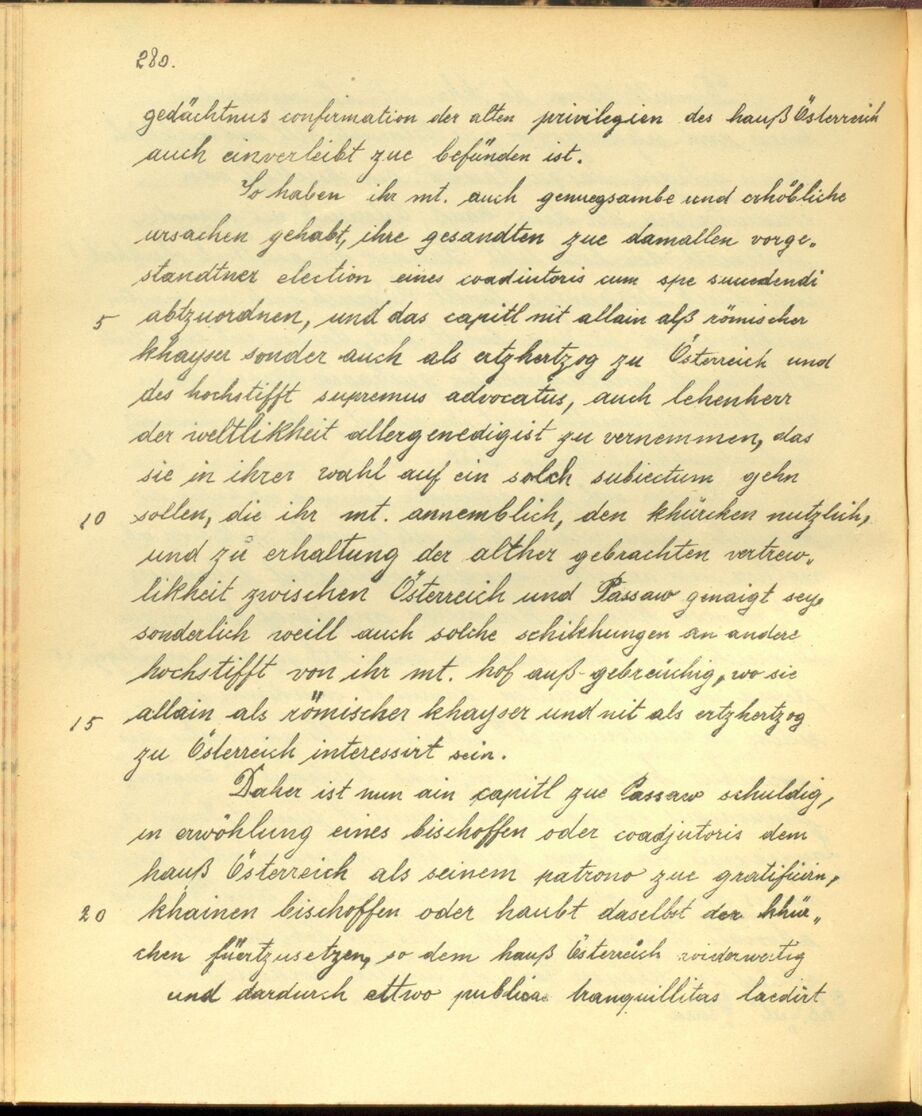 280.
gedächtnus confirmation der alten privilegien des hauß Österreich
auch einverleibt zue befünden ist.
So haben ihr mt. auch genuegsambe und erhöbliche
ursachen gehabt, ihre gesandten zue damallen vorge„
standtner election eines coadiutoris cum spe succedendi
5 abtzuordnen, und das capitl nit allain alß römischer
khayser sonder auch als ertzhertzog zu Österreich und
des hochstifft supremus advocatus, auch lehenherr
der weltlikheit allergenedigist zu vernemmen, das
sie in ihrer wahl auf ein solch subiectum gehn
10 sollen, die ihr mt. annemblich, den khürchen nutzlich,
und zu erhaltung der alther gebrachten vertrew„
likheit zwischen Österreich und Passaw genaigt sey,
sonderlich weill auch solche schikhungen an andere
hochstifft von ihr mt. hof auß gebreüchig, wo sie
15 allain als römischer khayser und nit als ertzhertzog
zu Österreich interessirt sein.
Daher ist nun ain capitl zue Passaw schuldig,
in erwöhlung eines bischoffen oder coadjutoris dem
hauß Österreich als seinem patrono zue gratifiirn,
20 khainen bischoffen oder haubt daselbst der khür„
chen fürtzusetzen, so dem hauß Österreich widerwertig
und dardurch ettwo publica tranquillitas laedirt